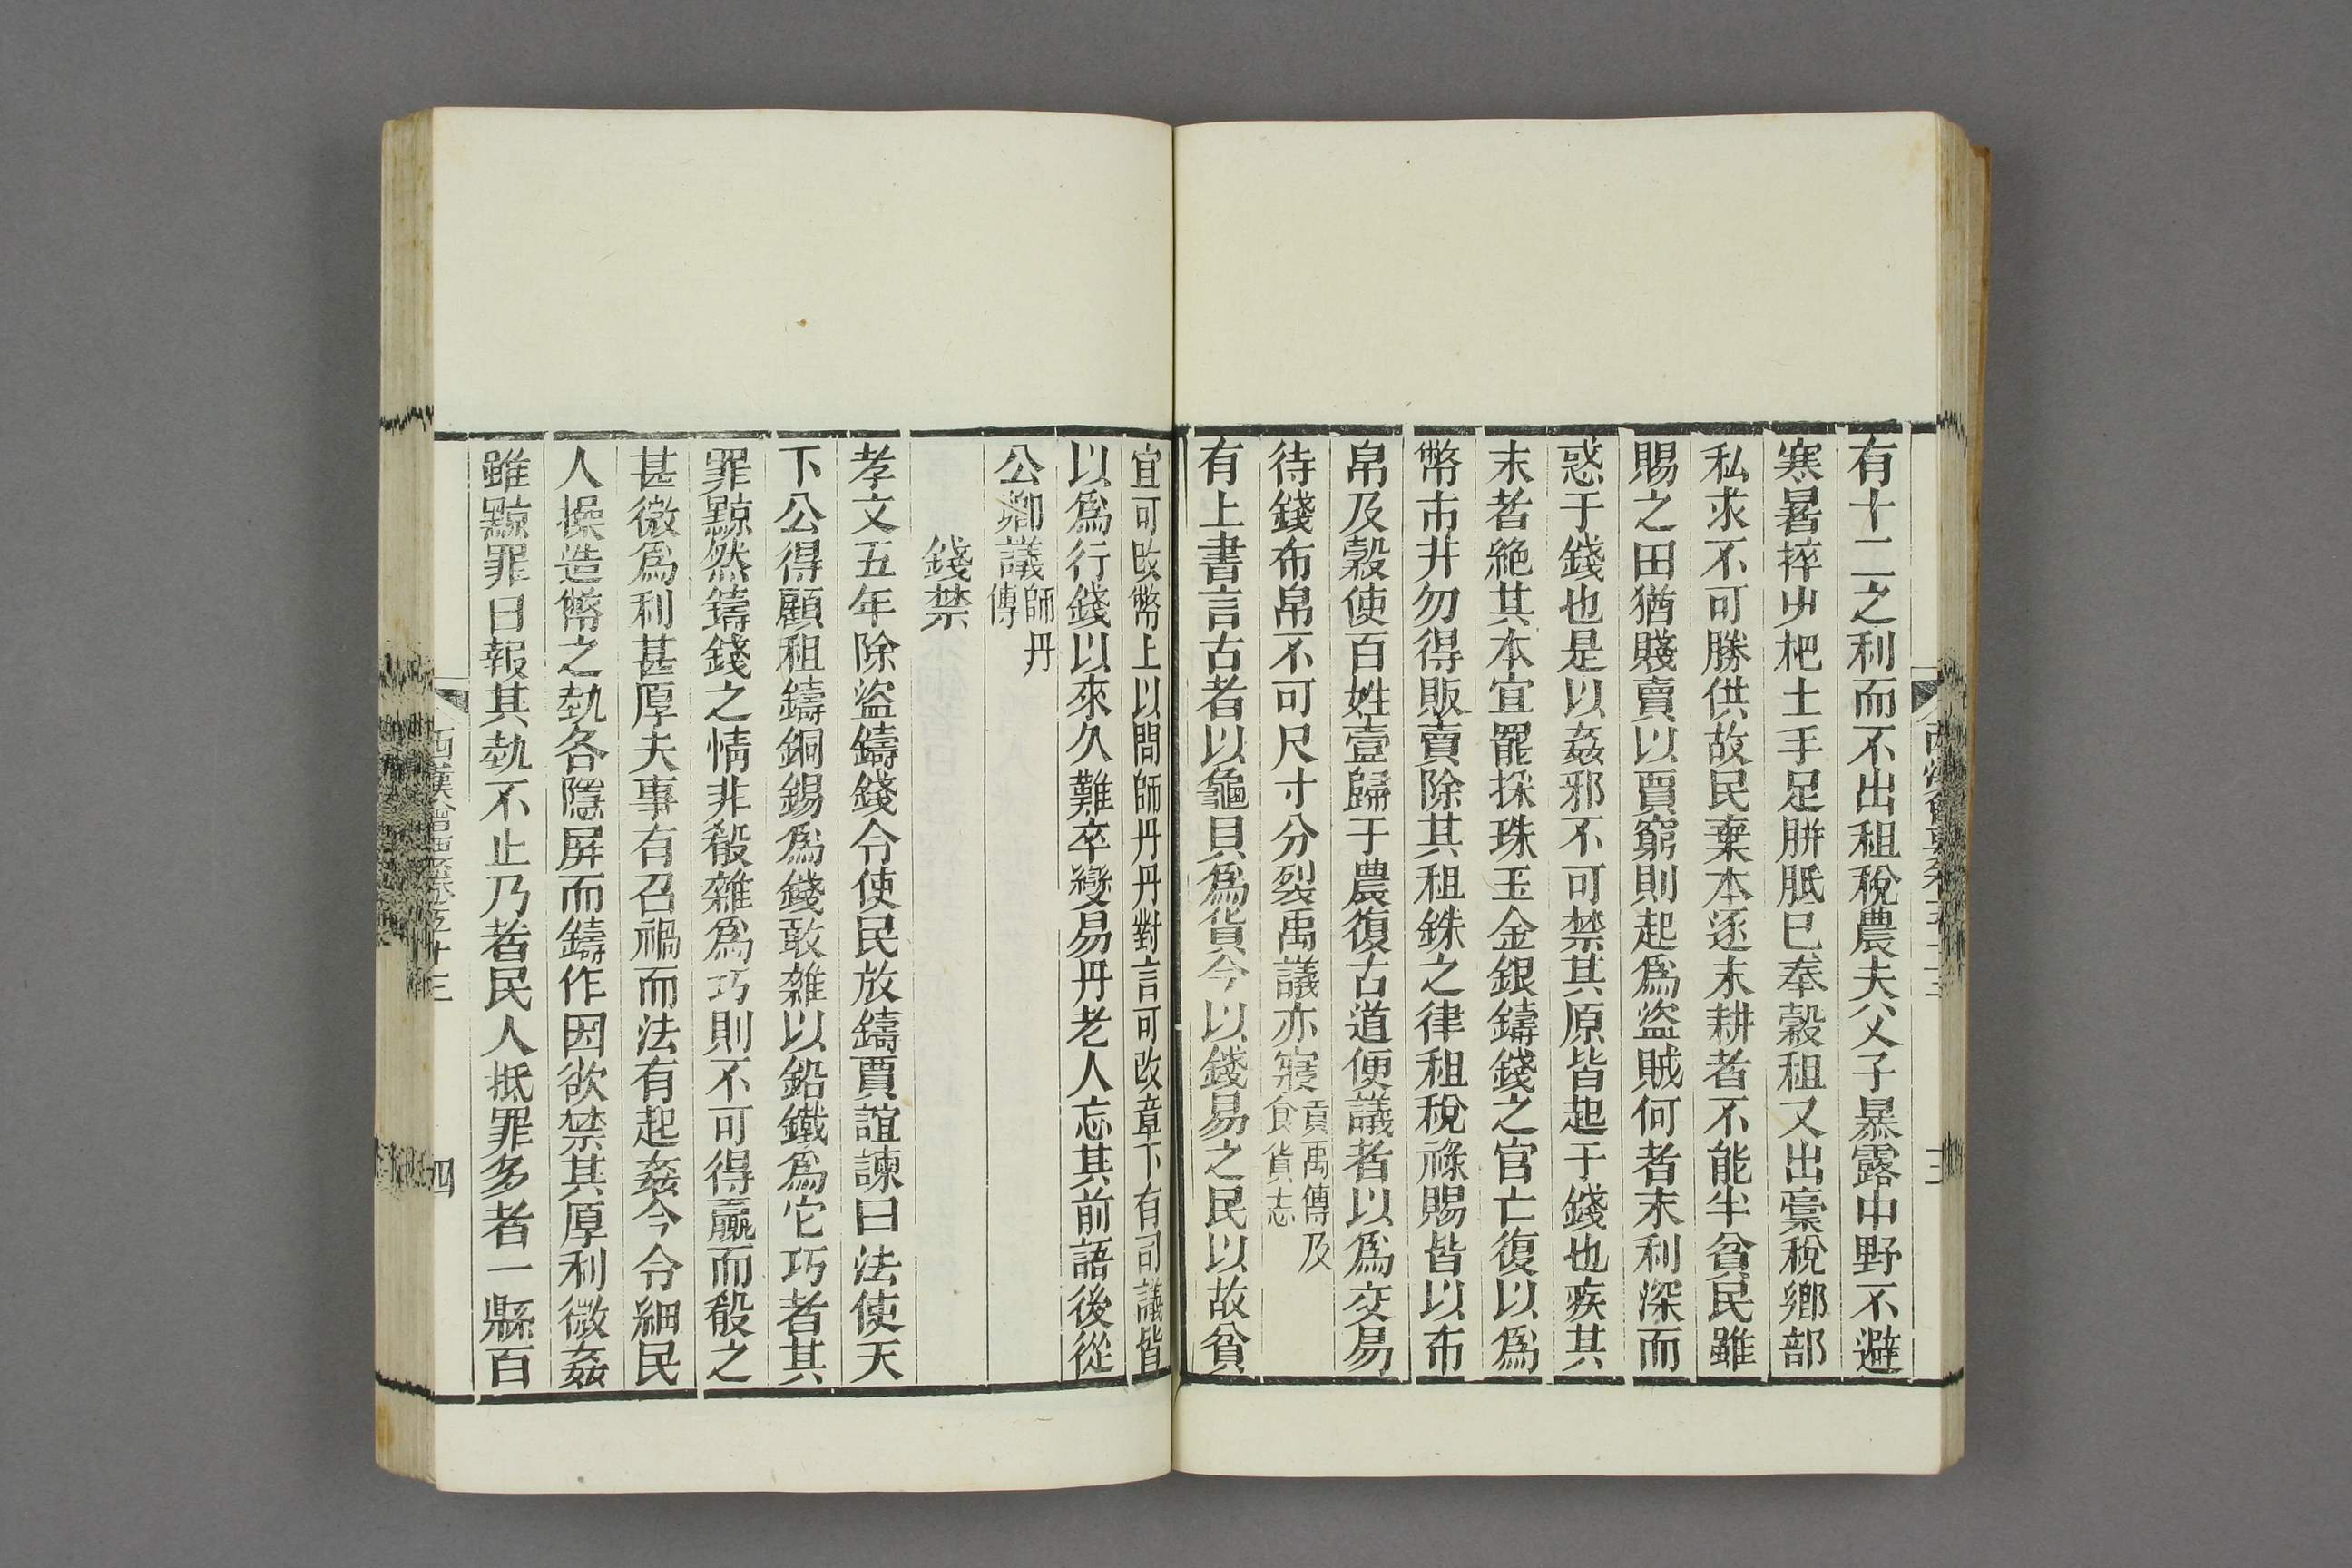 有十二之利而不出租稅農夫父子暴露中野不避
寒暑捽屮杷土手足胼胝已奉穀租又出稾稅鄉部
私求不可勝供故民棄本逐末耕者不能半貧民雖
賜之田猶賤賣以賈窮則起爲盜賊何者末利深而
惑于錢也是以姦邪不可禁其原皆起于錢也疾其
末者絶其本宜罷採珠玉金銀鑄錢之官亡復以爲
幣市井勿得販賣除其租銖之律租稅祿賜皆以布
帛及穀使百姓壹歸于農復古道便議者以爲交易
待錢布帛不可尺寸分裂禹議亦寢貢禹傳及食貨志
有上書言古者以龜貝爲貨今以錢易之民以故貧
宜可改幣上以問師丹丹對言可改章下有司議皆
以爲行錢以來久難卒變易丹老人忘其前語後從
公卿議師丹傳
錢禁
孝文五年除盜鑄錢令使民放鑄賈誼諫曰法使天
下公得顧租鑄銅錫爲錢敢雜以鉛鐵爲它巧者其
罪黥然鑄錢之情非殽雜爲巧則不可得贏而殽之
甚微爲利甚厚夫事有召禍而法有起姦今令細民
人操造幣之埶各隱屏而鑄作因欲禁其厚利微姦
雖黥罪日報其埶不止乃者民人抵罪多者一縣百
西漢會要卷五十三
四